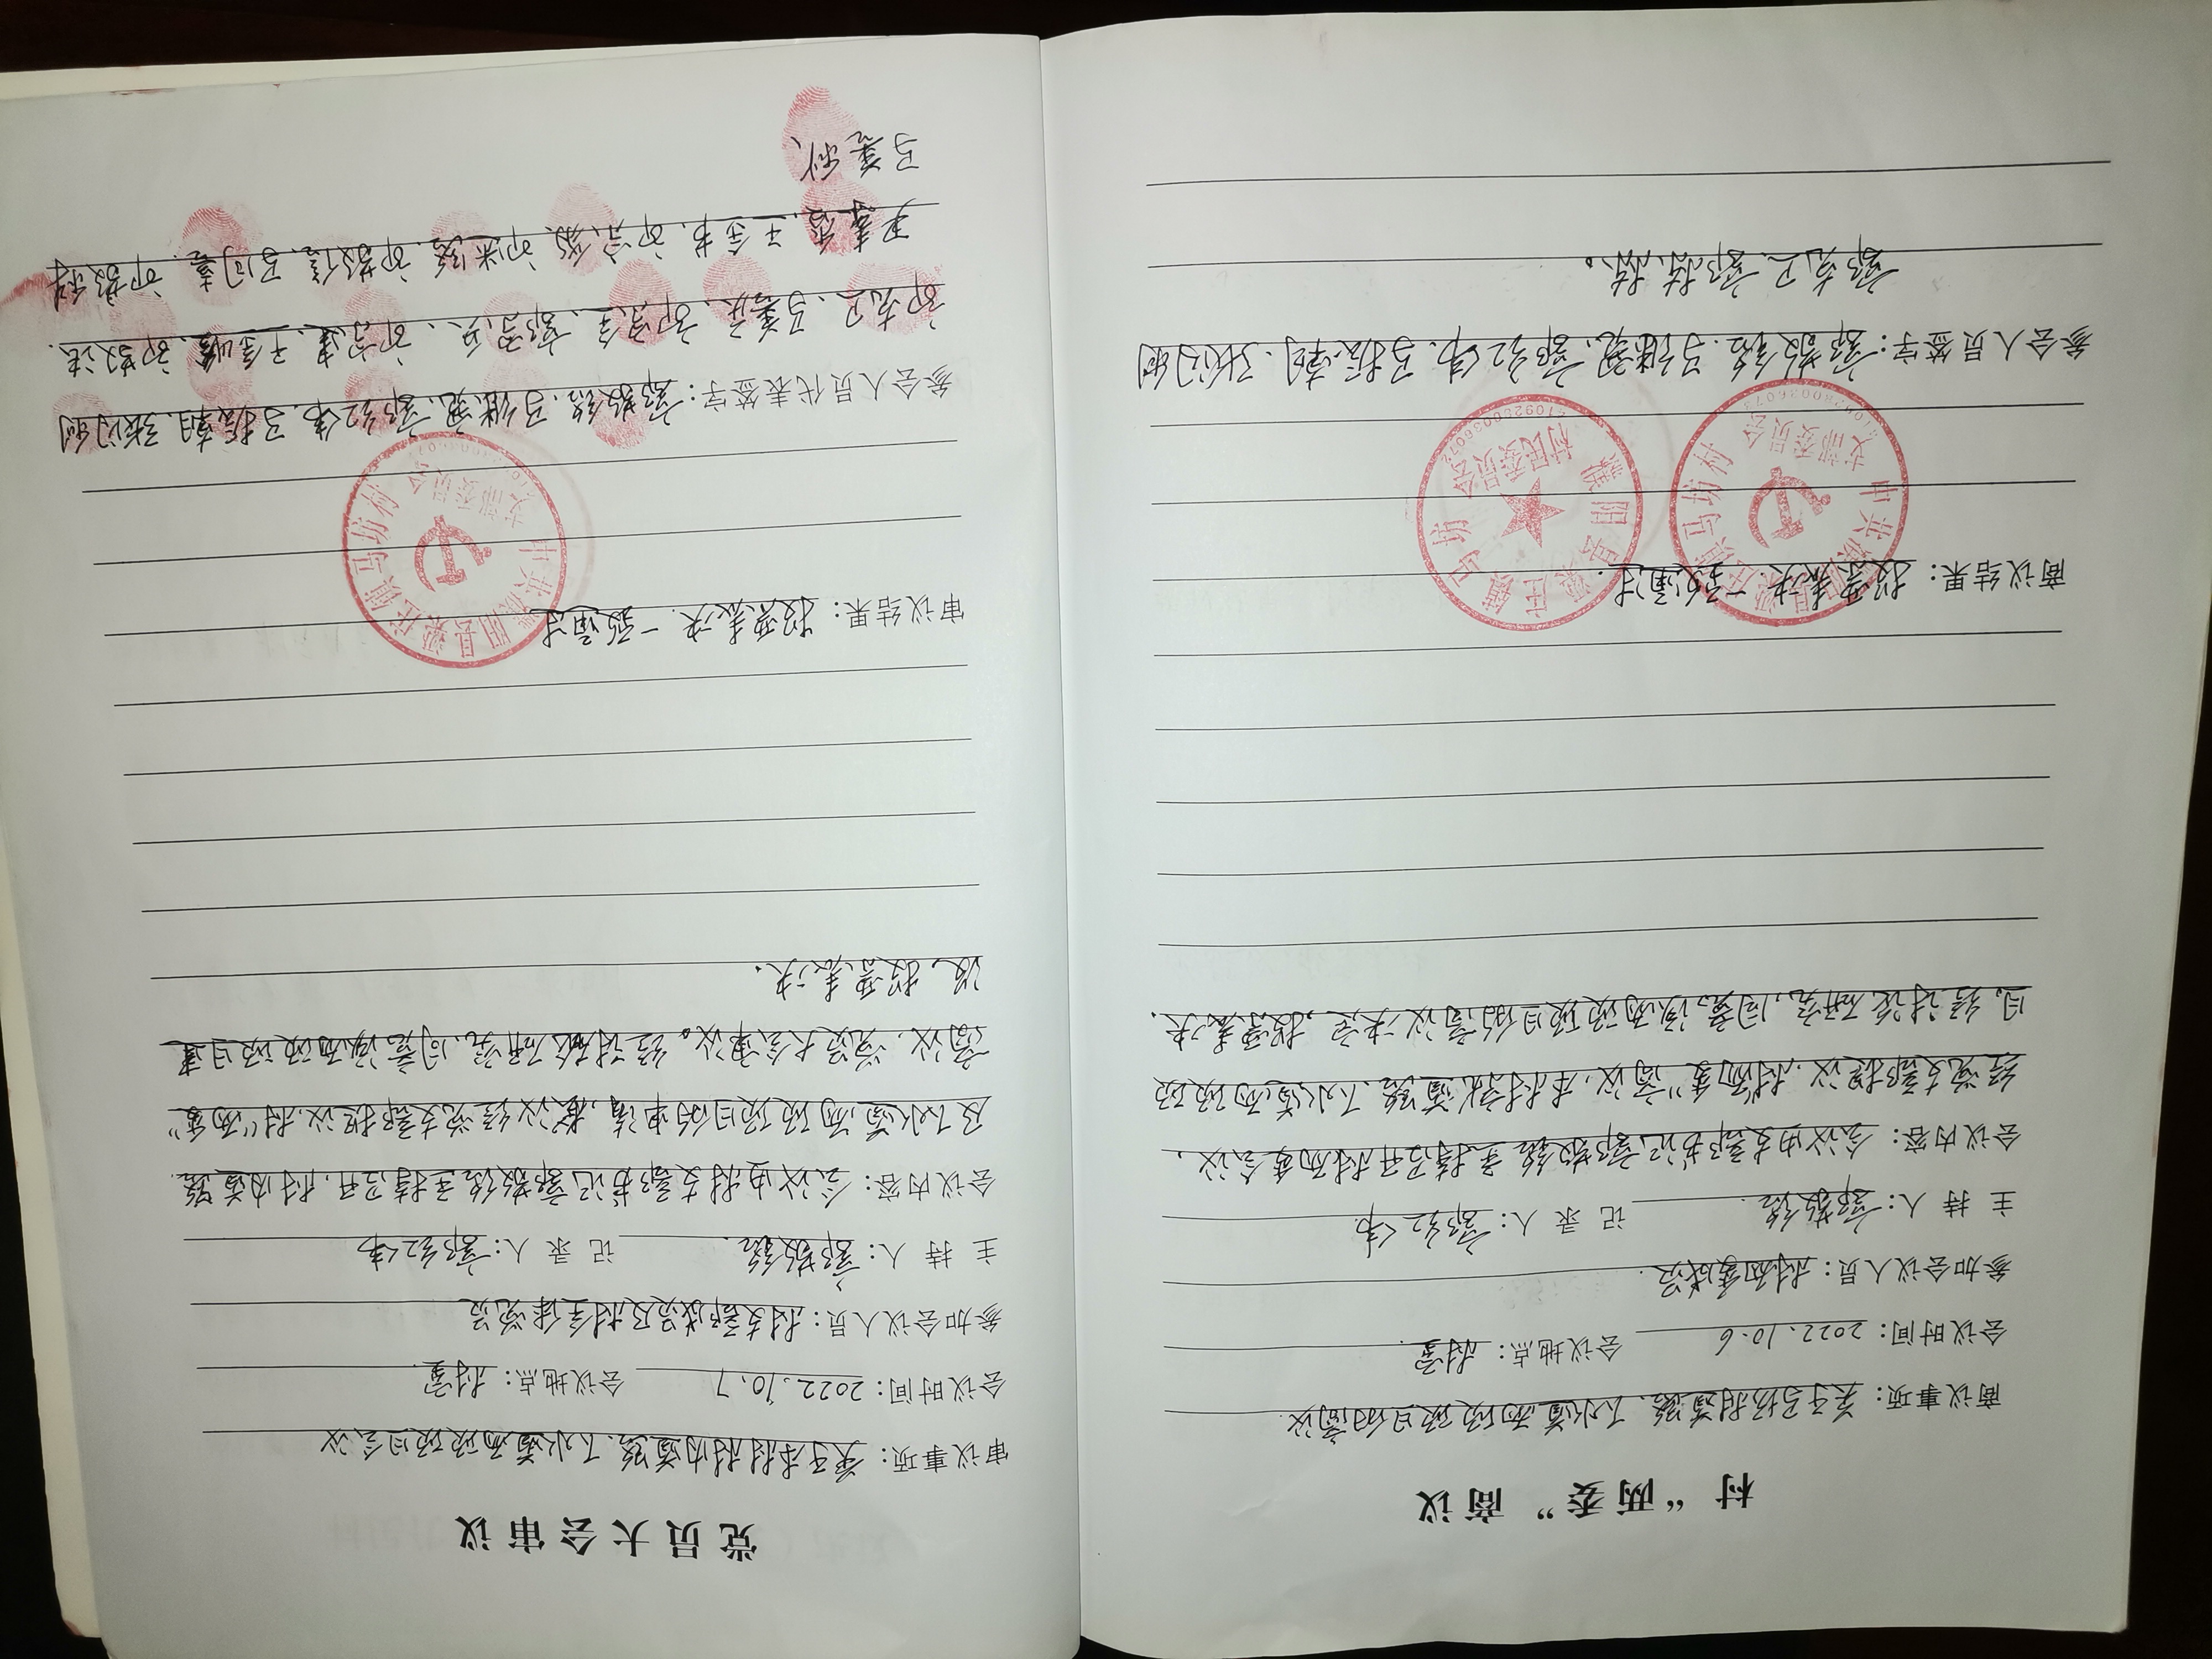 村“两委”商议
商议事项：关于马坊村道路、下水道两项项目的商议.
会议时间：2022.10.6 会议地点：村室.
参加会议人员：村两委成员.
主 持 人：郭敬铭. 记 录 人：郭红伟.
会议内容：会议由支部书记郭敬铭主持召开村两委会议，
经党支部提议，村“两委”商议，本村就道路、下水道两项项
目，经讨论研究，同意该两项项目的商议决定，投票表决.
商议结果：投票表决.一致通过.
中共濮阳县梁庄镇马坊村
支部委员会
濮阳县梁庄镇马坊
村民委员会
参会人员签字：郭敬铭、马继宽、郭红伟、马振朝、张闪利
郭克卫、郭栋栋。
党员大会审议
审议事项：关于本村村内道路、下水道两项项目会议
会议时间：2022.10.7 会议地点：村室.
参加会议人员：村支部成员及村全体党员
主 持 人：郭敬铭. 记 录 人：郭红伟
会议内容：会议由村支部书记郭敬铭主持召开，村内道路
及下水道两项项目的申请，议经党支部提议，村“两委”
商议，党员大会审议。经讨论研究，同意该两项项目建
设，投票表决.
审议结果：投票表决.一致通过
中共濮阳县梁庄镇马坊村
支部委员会
参会人员代表签字：郭敬铭、马继宽、郭红伟、马振朝、张闪利
郭克卫、马善庆、郭宗全、郭宗兵、郭宗建、王金峰、郭敬法.
尹素香、王金书、郭宗、郭迷路、郭敬信、马同喜、郭敬科
马善秋、